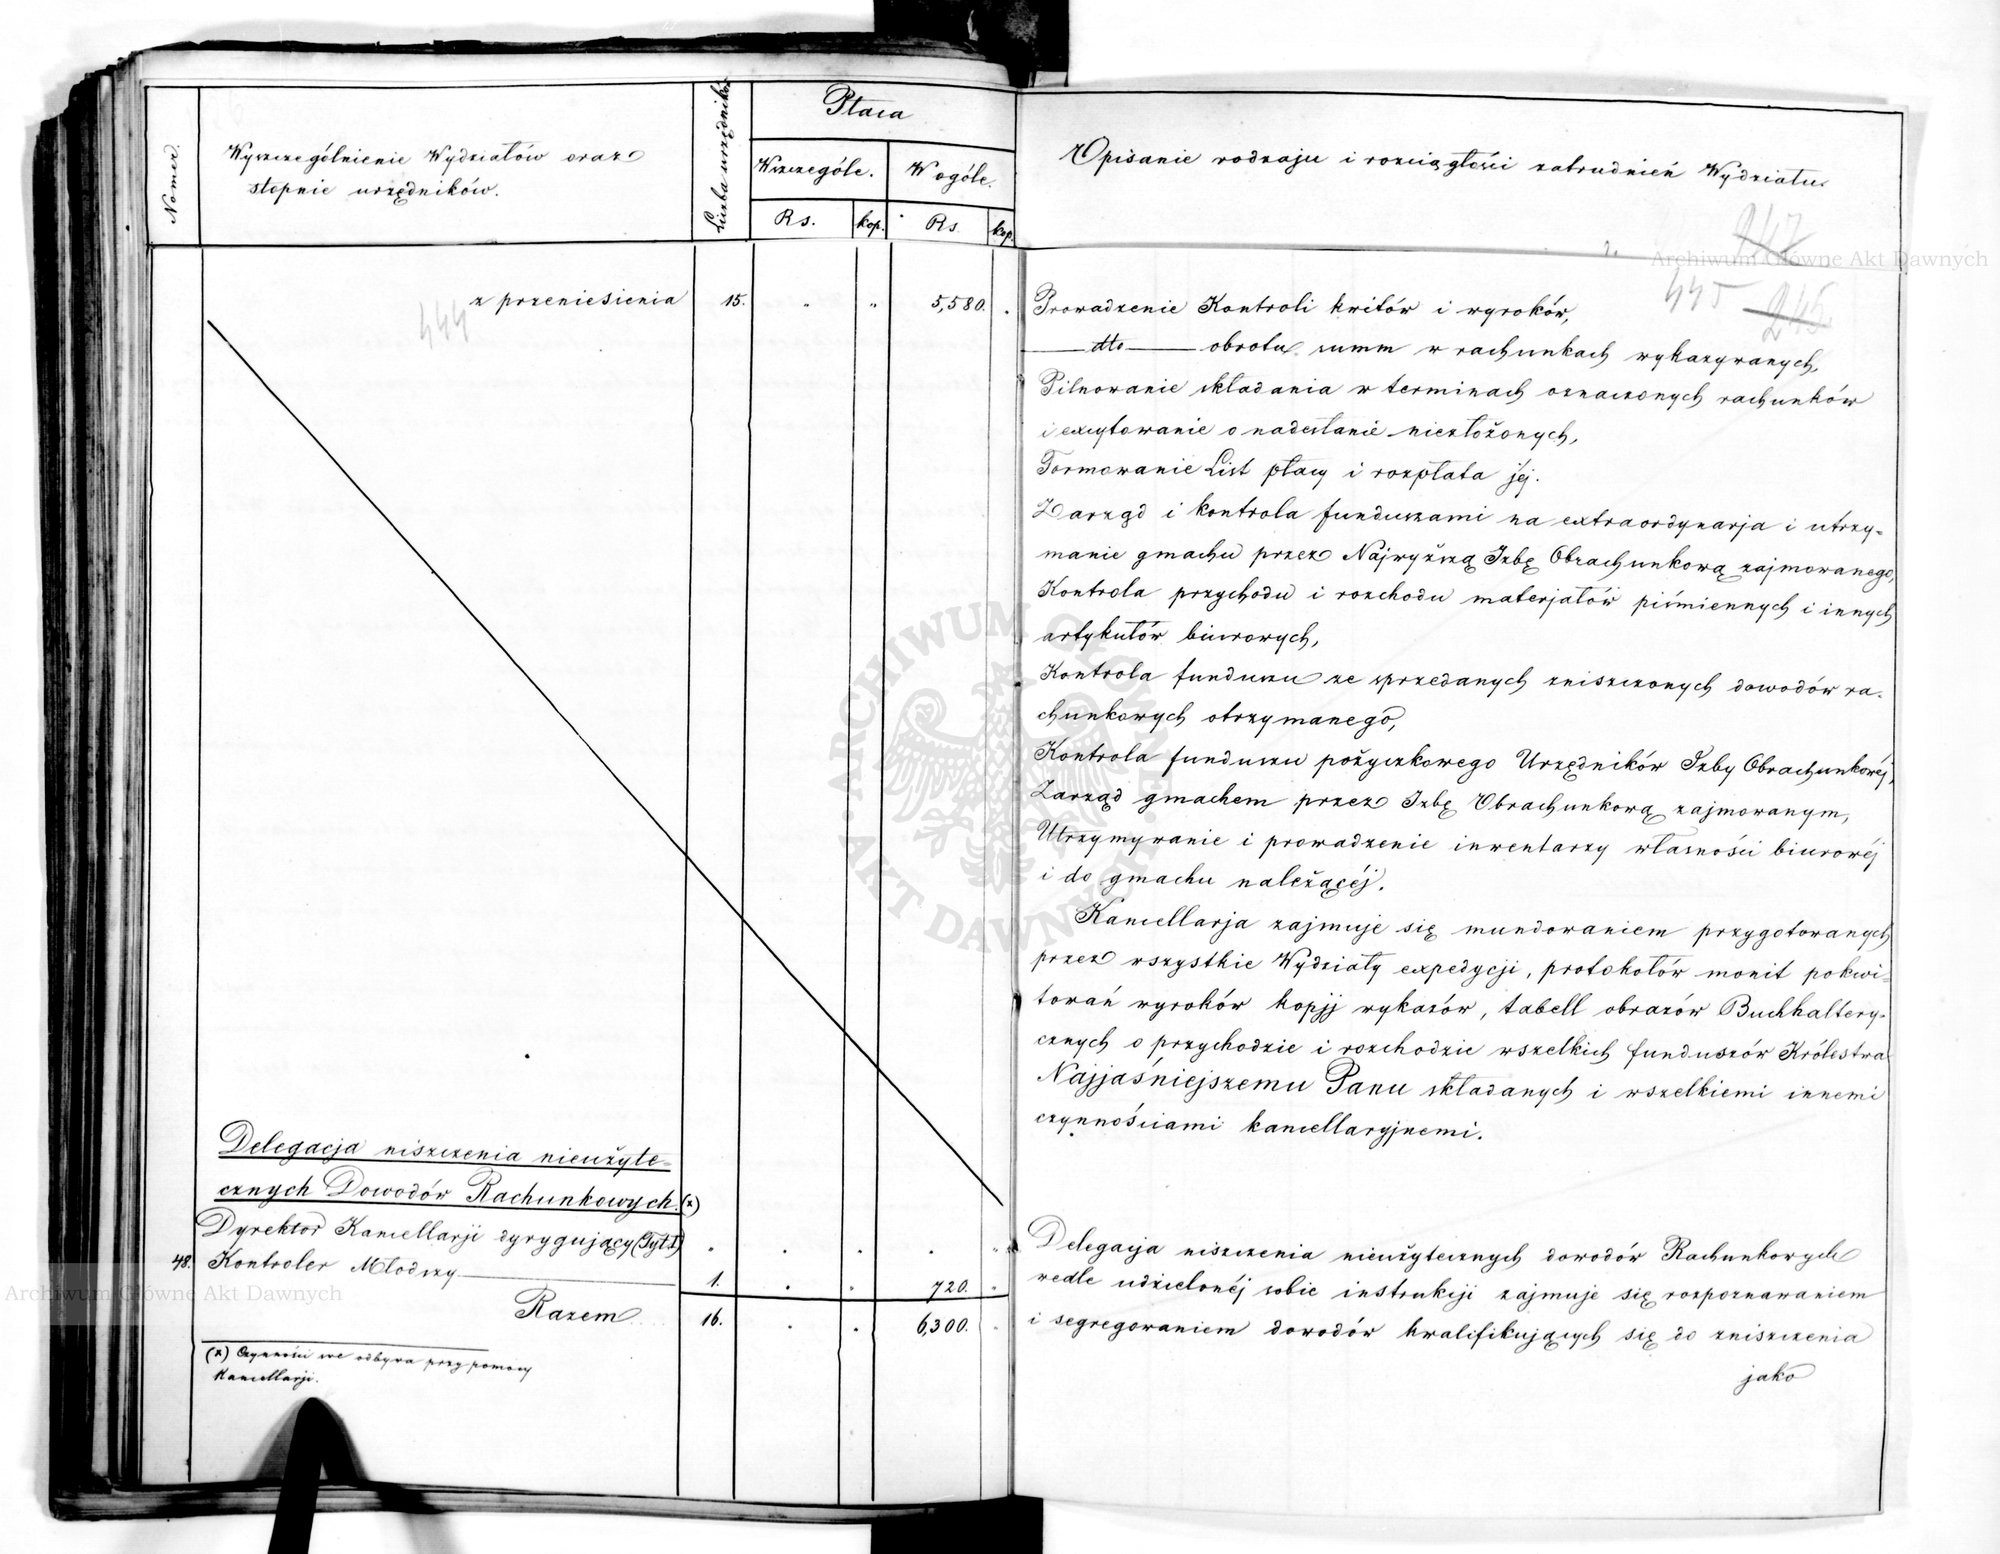 Nomer.
Wyszczególnienie Wydziałów oraz
stopnie urzędników.
Liczba urzędników
Płaca
Wszczególe.
Wogóle.
Rs.
kop.
Rs.
kop.
444
z przeniesienia 15. " " 5,580. "
Delegacja niszczenia nieużyte-
cznych Dowodów Rachunkowych (x)
Dyrektor Kancellarji dyrygujący (Tyt 1)
48. Kontroler Młodszy 1. " " 720. "
Razem 16. " " 6,300. "
(x) Czynności swe odbywa przy pomocy
Kancellarji.
Opisanie rodzaju i rozciągłości zatrudnień Wydziału.
247
445
245
Prowadzenie Kontroli kwitów i wyroków,
— dto — obrotu summ w rachunkach wykazywanych,
Pilnowanie składania w terminach oznaczonych rachunków
i excytowanie o nadesłanie niezłożonych,
Formowanie List płacy i rozpłata jéj.
Zarząd i kontrola funduszami na extraordynarja i utrzy-
manie gmachu przez Najwyższą Izbę Obrachunkową zajmowanego,
Kontrola przychodu i rozchodu materjałów piśmiennych i innych
artykułów biurowych,
Kontrola funduszu ze sprzedanych zniszczonych dowodów ra-
chunkowych otrzymanego,
Kontrola funduszu pożyczkowego Urzędników Izby Obrachunkowéj,
Zarząd gmachem przez Izbę Obrachunkową zajmowanym,
Utrzymywanie i prowadzenie inwentarzy własności biurowéj
i do gmachu należącéj.
Kancellarja zajmuje się mundowaniem przygotowanych
przez wszystkie Wydziały expedycji, protokołów monit pokwi-
towań wyroków kopjj wykazów, tabell obrazów Buchhaltery-
cznych o przychodzie i rozchodzie wszelkich funduszów Królestwa
Najjaśniejszemu Panu składanych i wszelkiemi innemi
czynnościami kancellaryjnemi.
Delegacja niszczenia nieużytecznych dowodów Rachunkowych
wedle udzielonéj sobie instrukcji zajmuje się rozpoznawaniem
i segregowaniem dowodów kwalifikujących się do zniszczenia
jako
Archiwum Główne Akt Dawnych
Archiwum Główne Akt Dawnych